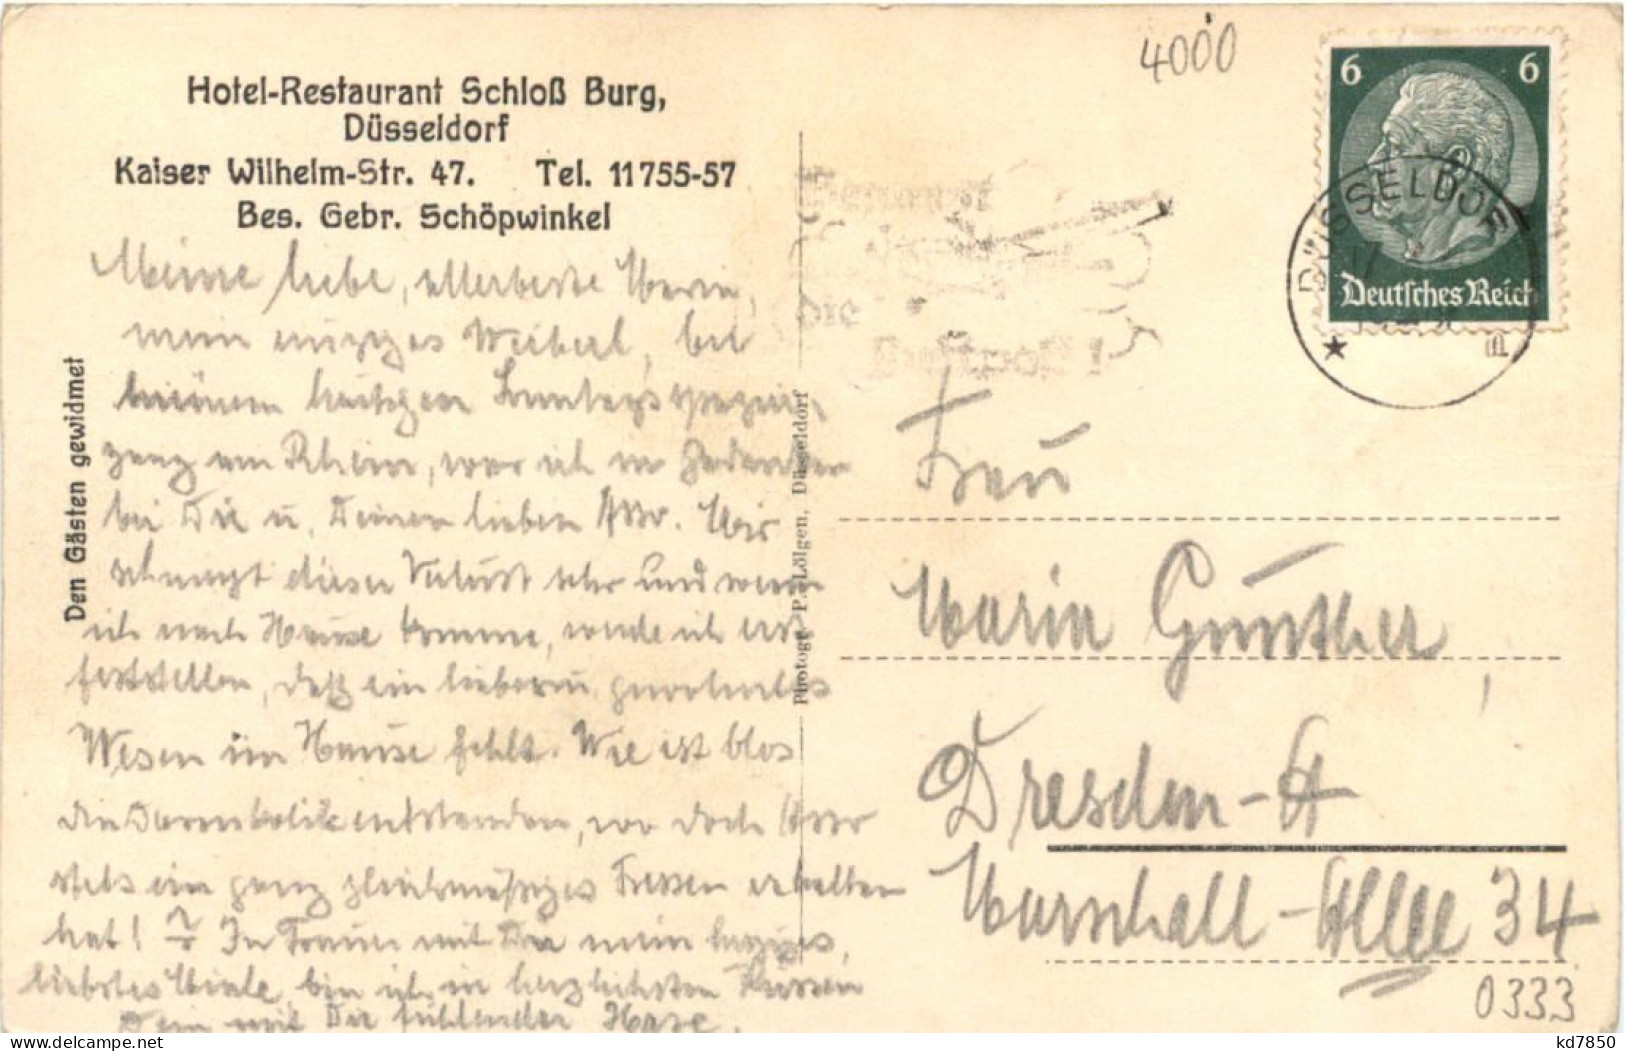 4000
Hotel-Restaurant Schloß Burg,
Düsseldorf
Kaiser Wilhelm-Str. 47. Tel. 11755-57
Bes. Gebr. Schöpwinkel
Den Gästen gewidmet
Meine liebe, allerbeste
mein einziges Weiberl, bei
meinem heutigen Sonntagsspazier-
gang am Rhein, war ich in Gedanken
bei Dir u. Deinem lieben Asso. Mir
schmerzt dieser Verlust sehr und wenn
ich nach Hause komme, werde ich erst
feststellen, daß ein liebes gewohntes
Wesen im Hause fehlt. Wie ist blos
die Darmkolik entstanden, wo doch Asso
stets ein ganz gleichmäßiges Fressen erhalten
hat! ? In Trauer mit Dir mein herziges,
liebstes bin ich in herzlichsten Küssen
Dein mit Dir fühlender Hase.
Photogr. P. Lölgen, Düsseldorf
die
Luftpost!
6 6
Deutsches Reich
DÜSSELDORF
Frau
Maria Günther,
Dresden-A
Marschall-Allee 34
0333
kd7850